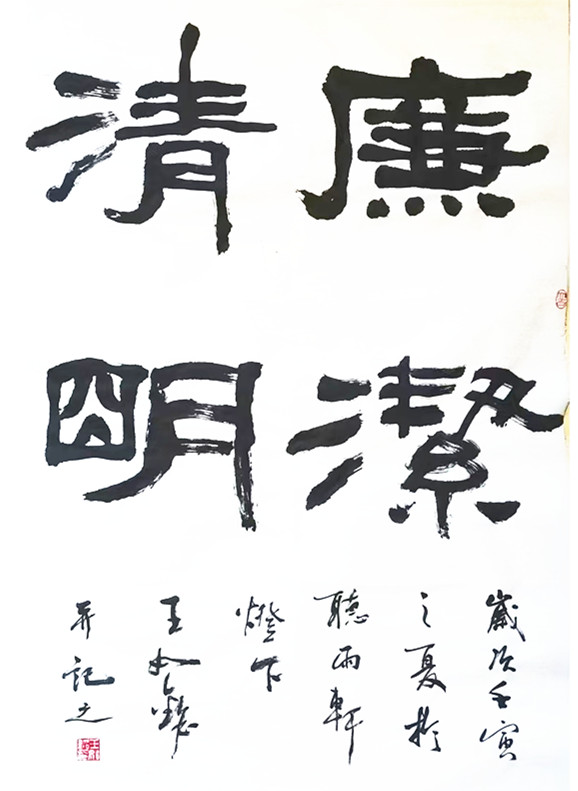 廉潔
清朙
歲次壬寅
之夏於
聽雨軒
燈下
王
并記之